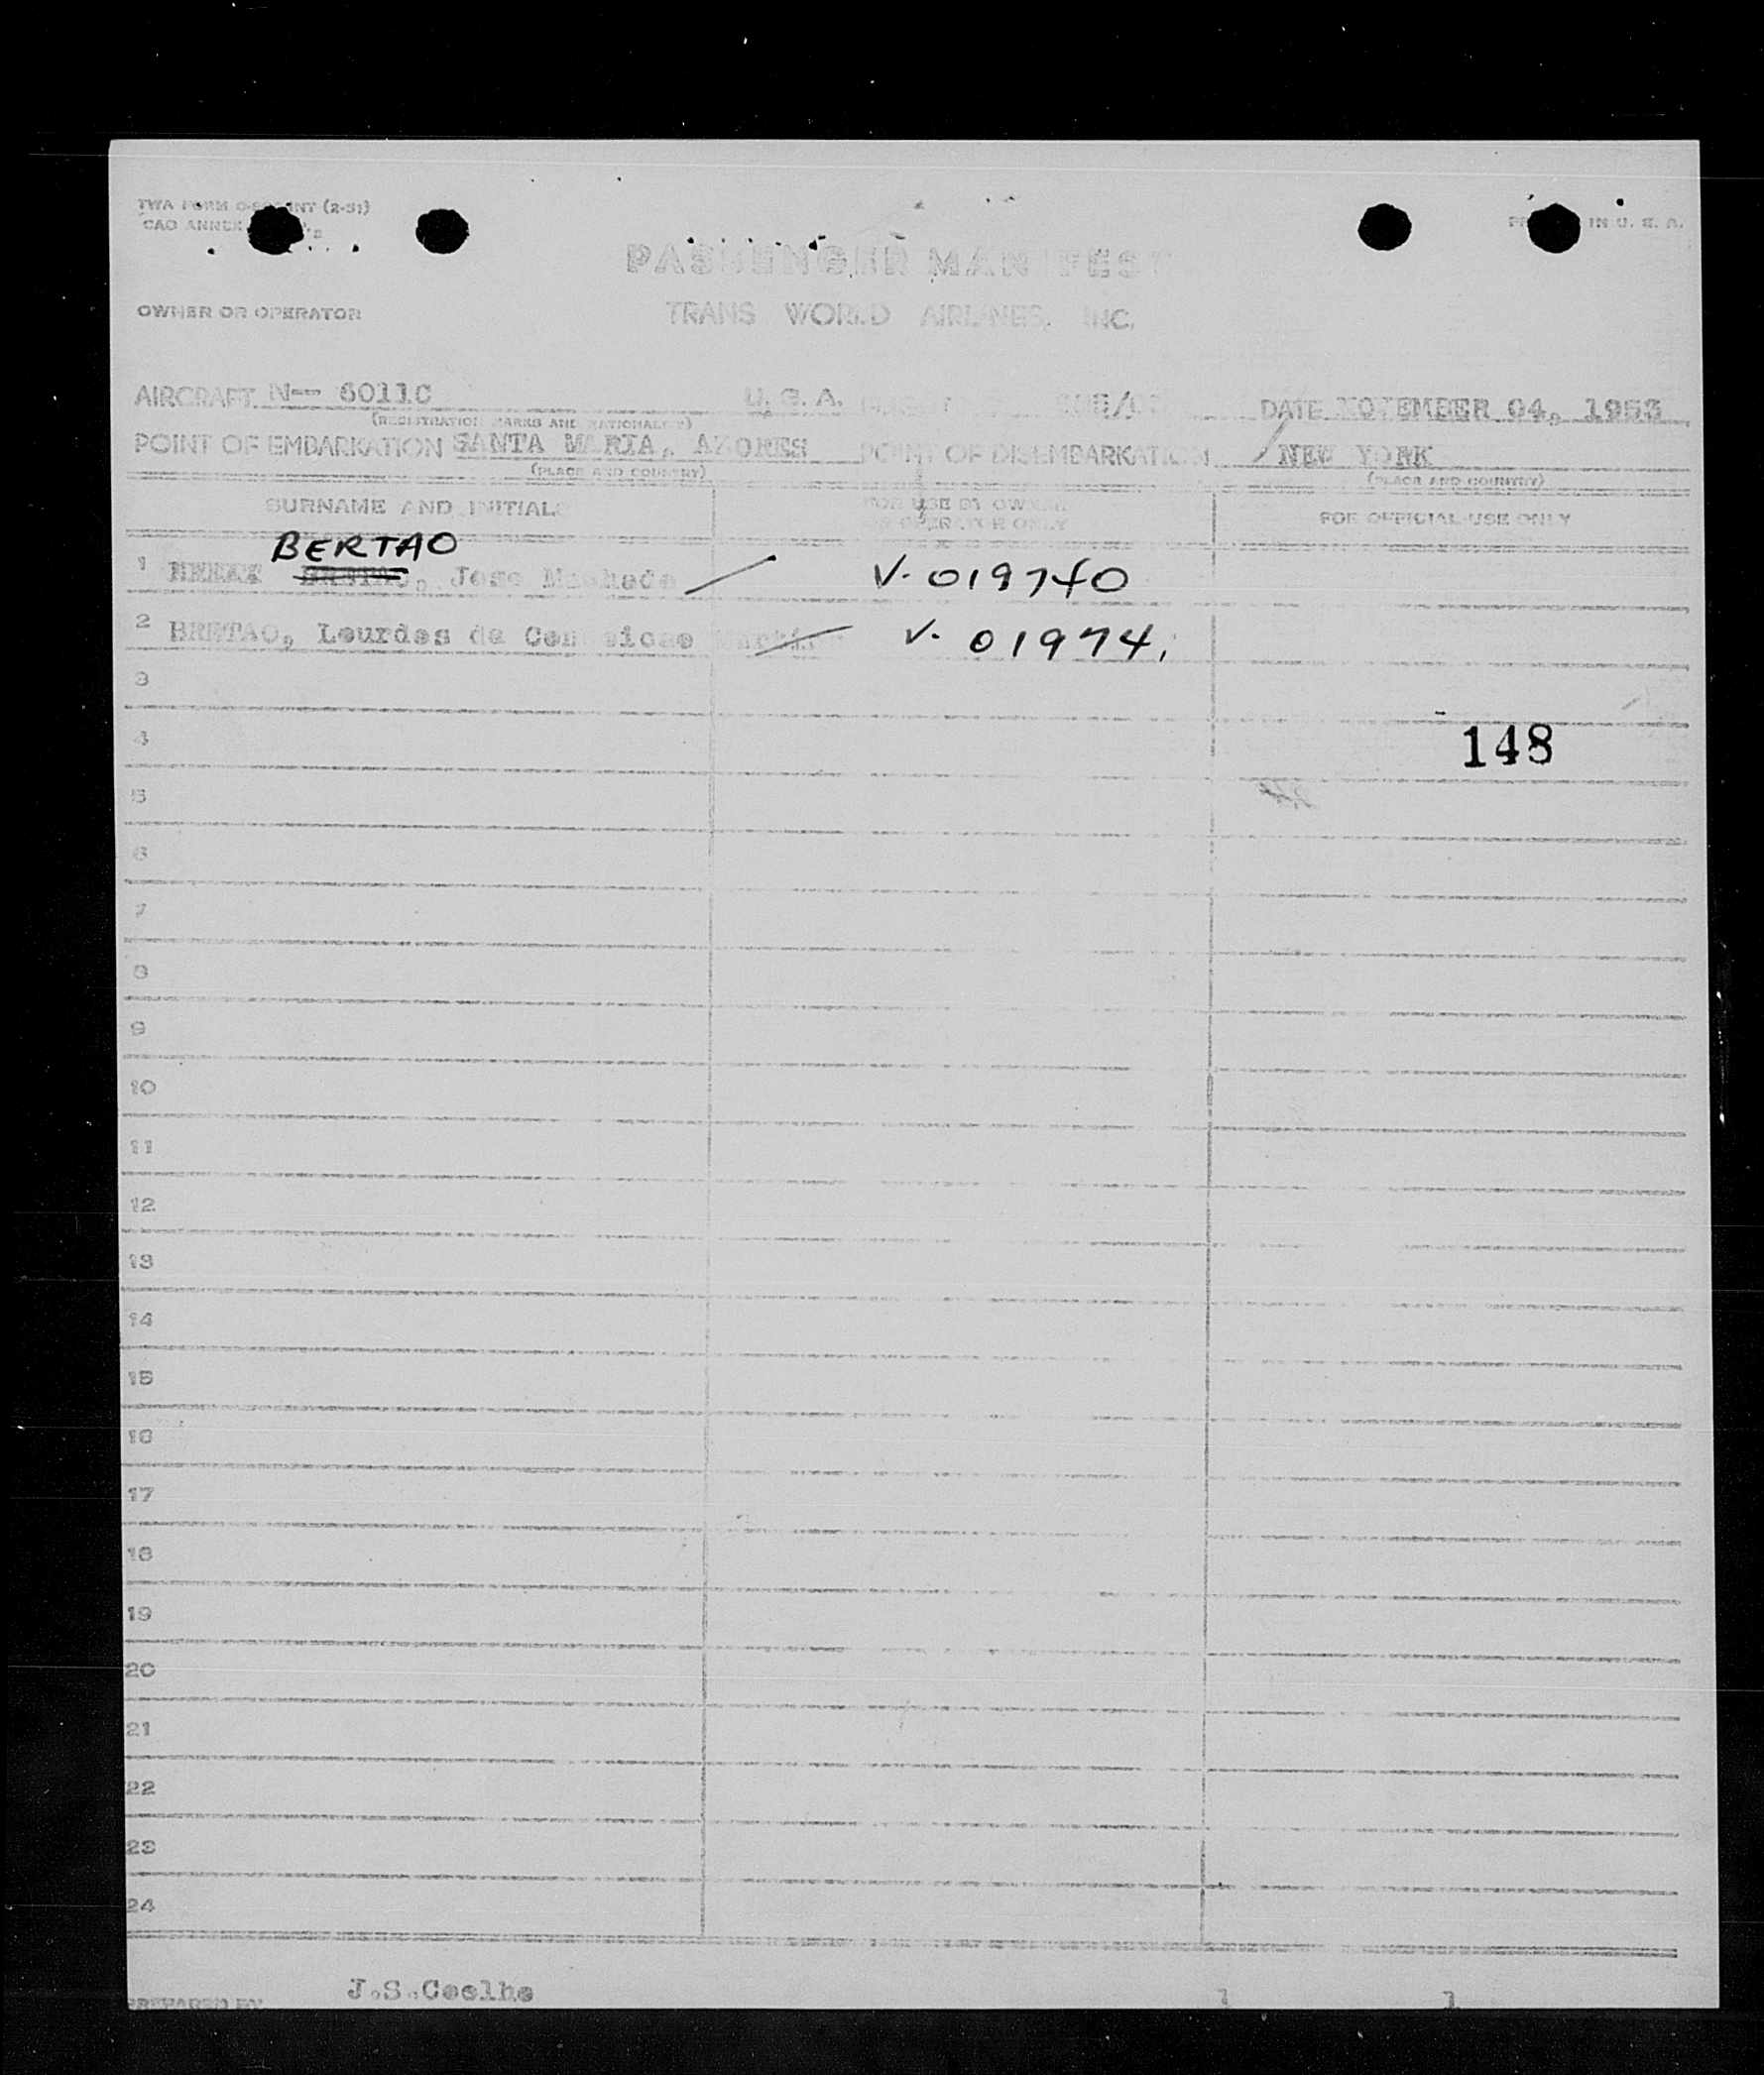 TWA FORM (2-51)
PRINTED IN U. S. A.
PASSENGER MANIFEST
OWNER OR OPERATOR TRANS WORLD AIRLINES, INC.
AIRCRAFT N-- 6011C U. S. A. DATE NOVEMBER 04, 1953
(REGISTRATION MARKS AND NATIONALITY)
POINT OF EMBARKATION SANTA MARIA, AZORES POINT OF DISEMBARKATION NEW YORK
(PLACE AND COUNTRY) (PLACE AND COUNTRY)
SURNAME AND INITIALS FOR USE BY OWNER OR OPERATOR ONLY FOR OFFICIAL USE ONLY
BERTAO
1 BRETAO, Jose Machado V. 019740
2 BRETAO, Lourdes da Conceicao V. 01974
3
4 148
5
6
7
8
9
10
11
12
13
14
15
16
17
18
19
20
21
22
23
24
PREPARED BY J.S.Coelho 1 1